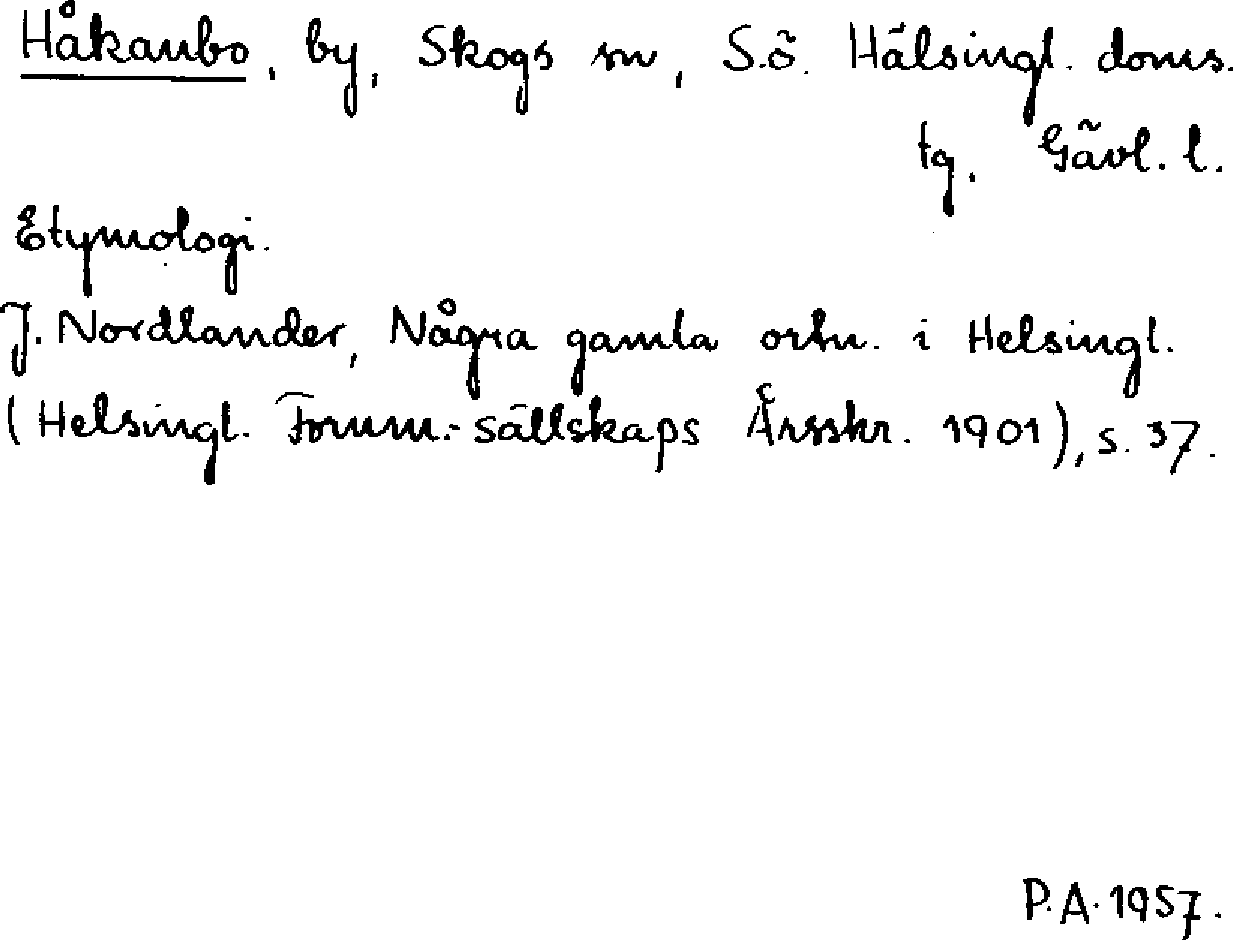 Håkanbo, by, Skogs sn, S.ö. Hälsingl. doms.
tg. Gävl. l.
Etymologi.
J. Nordlander, Några gamla ortn. i Helsingl.
(Helsingl. Fornm.-sällskaps Årsskr. 1901), s. 37.
P.A. 1957.